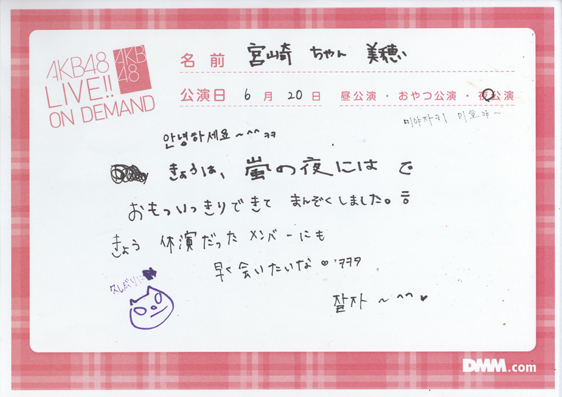 AKB48
LIVE!!
ON DEMAND
AKB
48
名前 宮崎 ちゃん 美穂
公演日 6月20日 昼公演・おやつ公演・夜公演
미야자키 미호
안녕하세요~^^ ㅋㅋ
きょうは、蛍の夜には で
おもいっきりできて まんぞくしました。
きょう 休演だった メンバーにも
早く会いたいな ♡ ㅋㅋㅋ
久しぶりに
잘자 ~ ^^ ♥
DMM.com